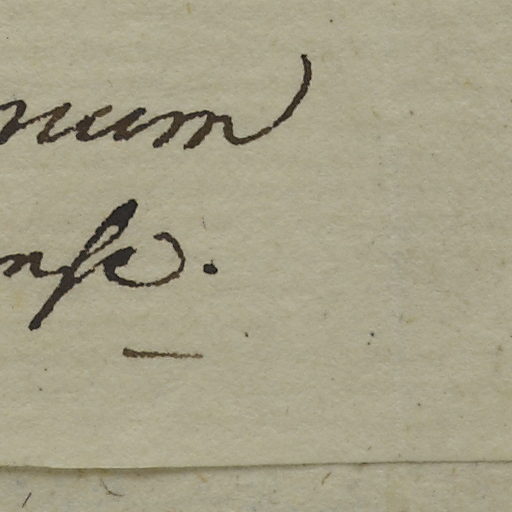 num
nſe.